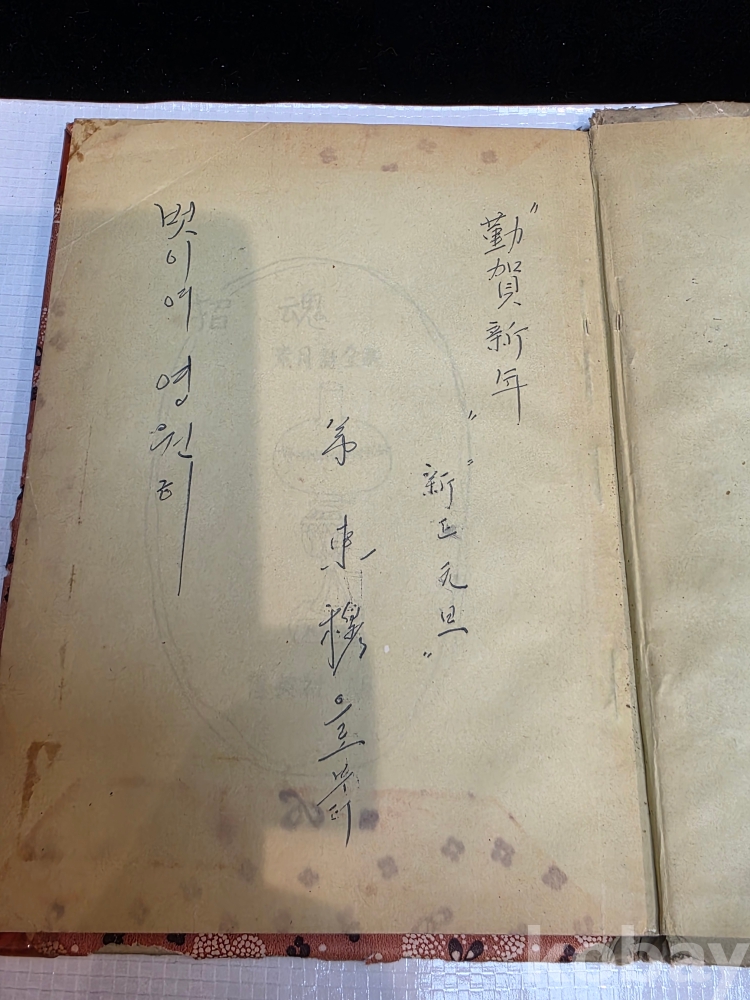 "勤賀新年"
"新正元旦"
弟 東穆 으로부터
벗이여 영원히
kobay